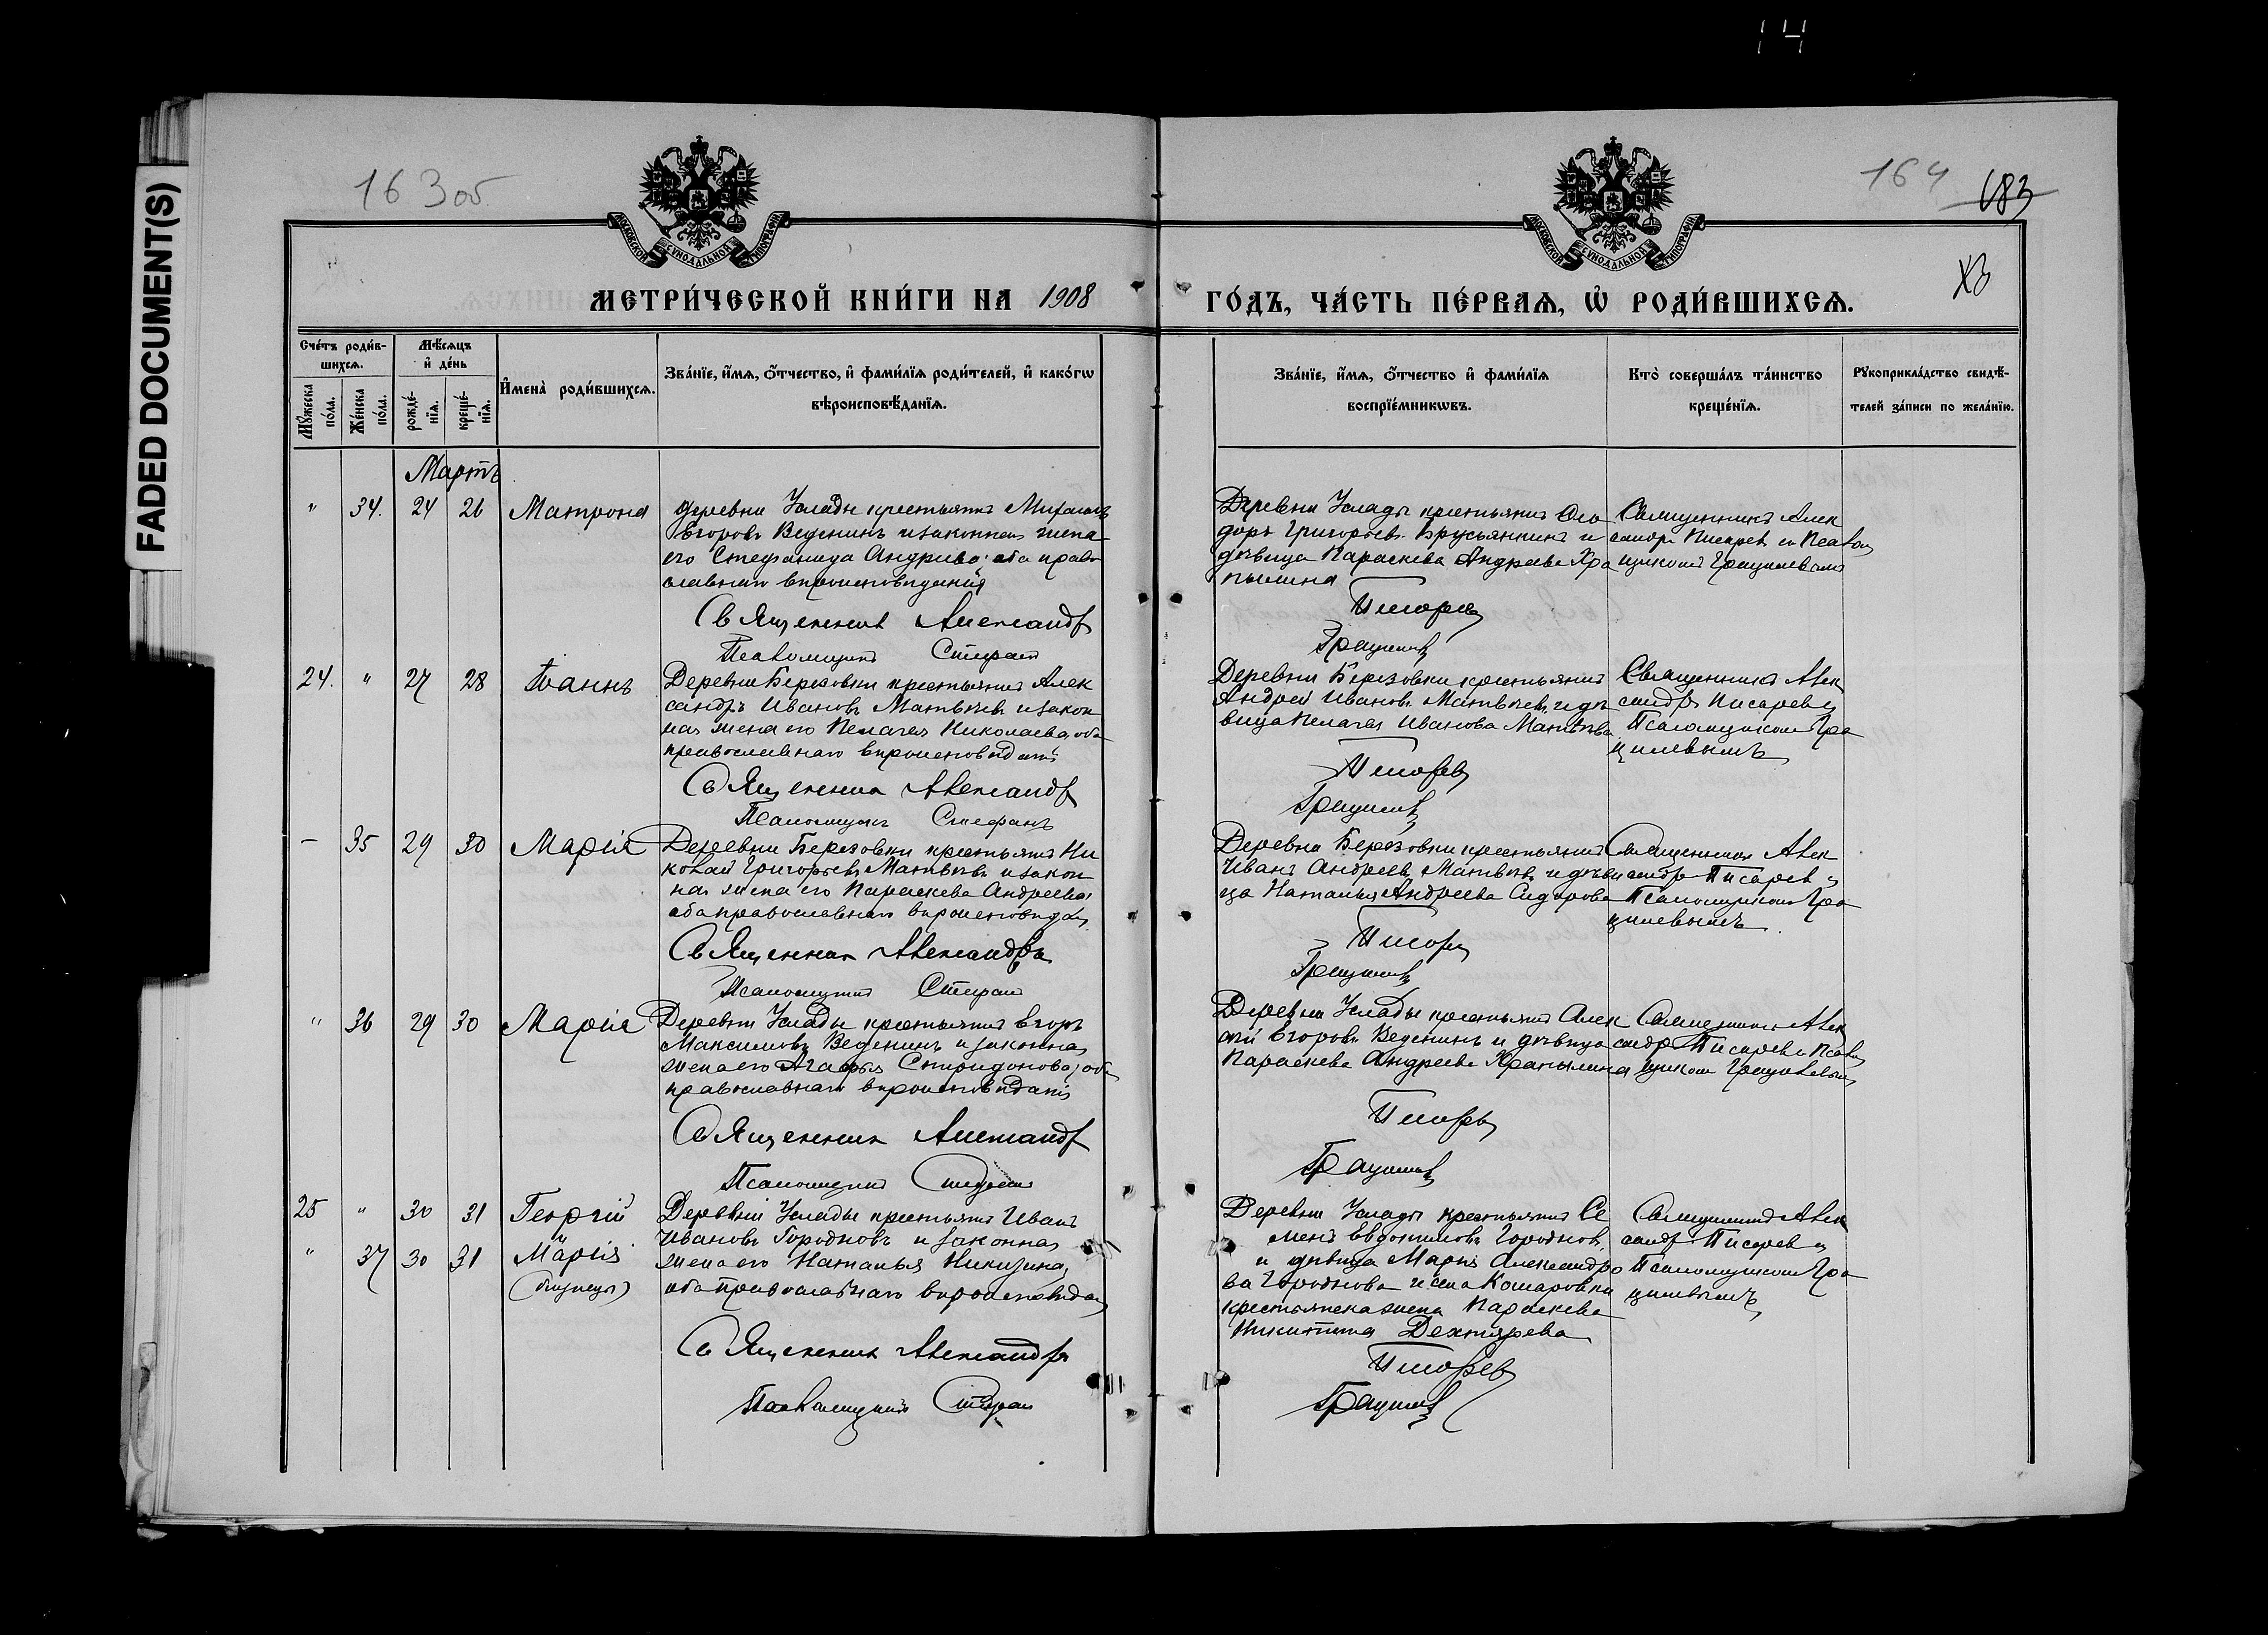 14
FADED DOCUMENT(S)
163 об.
164
183
МОСКОВСКОЙ СѴНОДАЛЬНОЙ ТИПОГРАФІИ
МОСКОВСКОЙ СѴНОДАЛЬНОЙ ТИПОГРАФІИ
МЕТРИ́ЧЕСКОЙ КНИ́ГИ НА 1908 ГО́ДЪ, ЧА́СТЬ ПЕ́РВАѦ, Ѡ҆ РОДИ́ВШИХСѦ.
Сче́тъ роди́в-
шихсѧ.
Мꙋ́жеска по́ла.
Же́нска по́ла.
Мѣ́сѧцъ
и҆ де́нь
рожде́-
нїѧ.
креще́-
нїѧ.
И҆мена̀ роди́вшихсѧ.
Зва́нїе, и҆́мѧ, ѻ҆́тчество, и҆ фами́лїѧ роди́телей, и҆ како́гѡ
вѣроисповѣ́данїѧ.
Зва́нїе, и҆́мѧ, ѻ҆́тчество и҆ фами́лїѧ
воспрїе́мникѡвъ.
Кто̀ соверша́лъ та́инство
креще́нїѧ.
Рꙋкоприкла́дство свидѣ́-
телей за́писи по жела́нїю.
Мартъ
" 34. 24 26 Матрона
деревни Услады крестьянинъ Михаилъ
Егоровъ Веденинъ и законная жена
его Стефанида Андреева, оба право
славнаго вѣроисповѣданія
Священникъ Александръ
Псаломщикъ Стефанъ
Деревни Услады крестьянинъ
Григорьевъ Брусьянкинъ и
дѣвица Параскева Андреева Хра
пылина
Писаревъ
Грацилевъ
Священникъ Алек
сандръ Писаревъ съ Псалом
щикомъ Грацилевымъ
24. " 27 28 Іоаннъ
Деревни Березовки крестьянинъ Алек
сандръ Ивановъ Матвѣевъ и закон
ная жена его Пелагея Николаева, оба
православнаго вѣроисповѣданія
Священникъ Александръ
Псаломщикъ Стефанъ
Деревни Березовки крестьянинъ
Андрей Ивановъ Матвѣевъ и дѣ
вица Пелагея Иванова Матвѣева
Писаревъ
Грацилевъ
Священникъ Алек
сандръ Писаревъ съ
Псаломщикомъ Гра
цилевымъ
— 35 29 30 Марія
Деревни Березовки крестьянинъ Ни
колай Григорьевъ Матвѣевъ и закон
ная жена его Параскева Андреева,
оба православнаго вѣроисповѣданія
Священникъ Александръ
Псаломщикъ Стефанъ
Деревни Березовки крестьянинъ
Иванъ Андреевъ Матвѣевъ и дѣви
ца Наталья Андреева Сидорова
Писаревъ
Грацилевъ
Священникъ Алек
сандръ Писаревъ съ
Псаломщикомъ Гра
цилевымъ
" 36 29 30 Марія
Деревни Услады крестьянинъ Егоръ
Максимовъ Веденинъ и законная
жена его Агафья Спиридонова, оба
православнаго вѣроисповѣданія
Священникъ Александръ
Псаломщикъ Стефанъ
Деревни Услады крестьянинъ Алек
сѣй Егоровъ Веденинъ и дѣвица
Параскева Андреева Храпылина
Писаревъ
Грацилевъ
Священникъ Алек
сандръ Писаревъ съ Псалом
щикомъ Грацилевымъ
25 " 30 31 Георгій
" 37 30 31 Марія
(близнецы)
Деревни Услады крестьянинъ Иванъ
Ивановъ Городновъ и законная
жена его Наталья Никитина,
оба православнаго вѣроисповѣданія
Священникъ Александръ
Псаломщикъ Стефанъ
Деревни Услады крестьянинъ Се
менъ Евдокимовъ Городновъ
и дѣвица Марья Александро
ва Городнова и села Комаровки
крестьянска жена Параскева
Никитина Дехтярева
Писаревъ
Грацилевъ
Священникъ Алек
сандръ Писаревъ съ
Псаломщикомъ Гра
цилевымъ